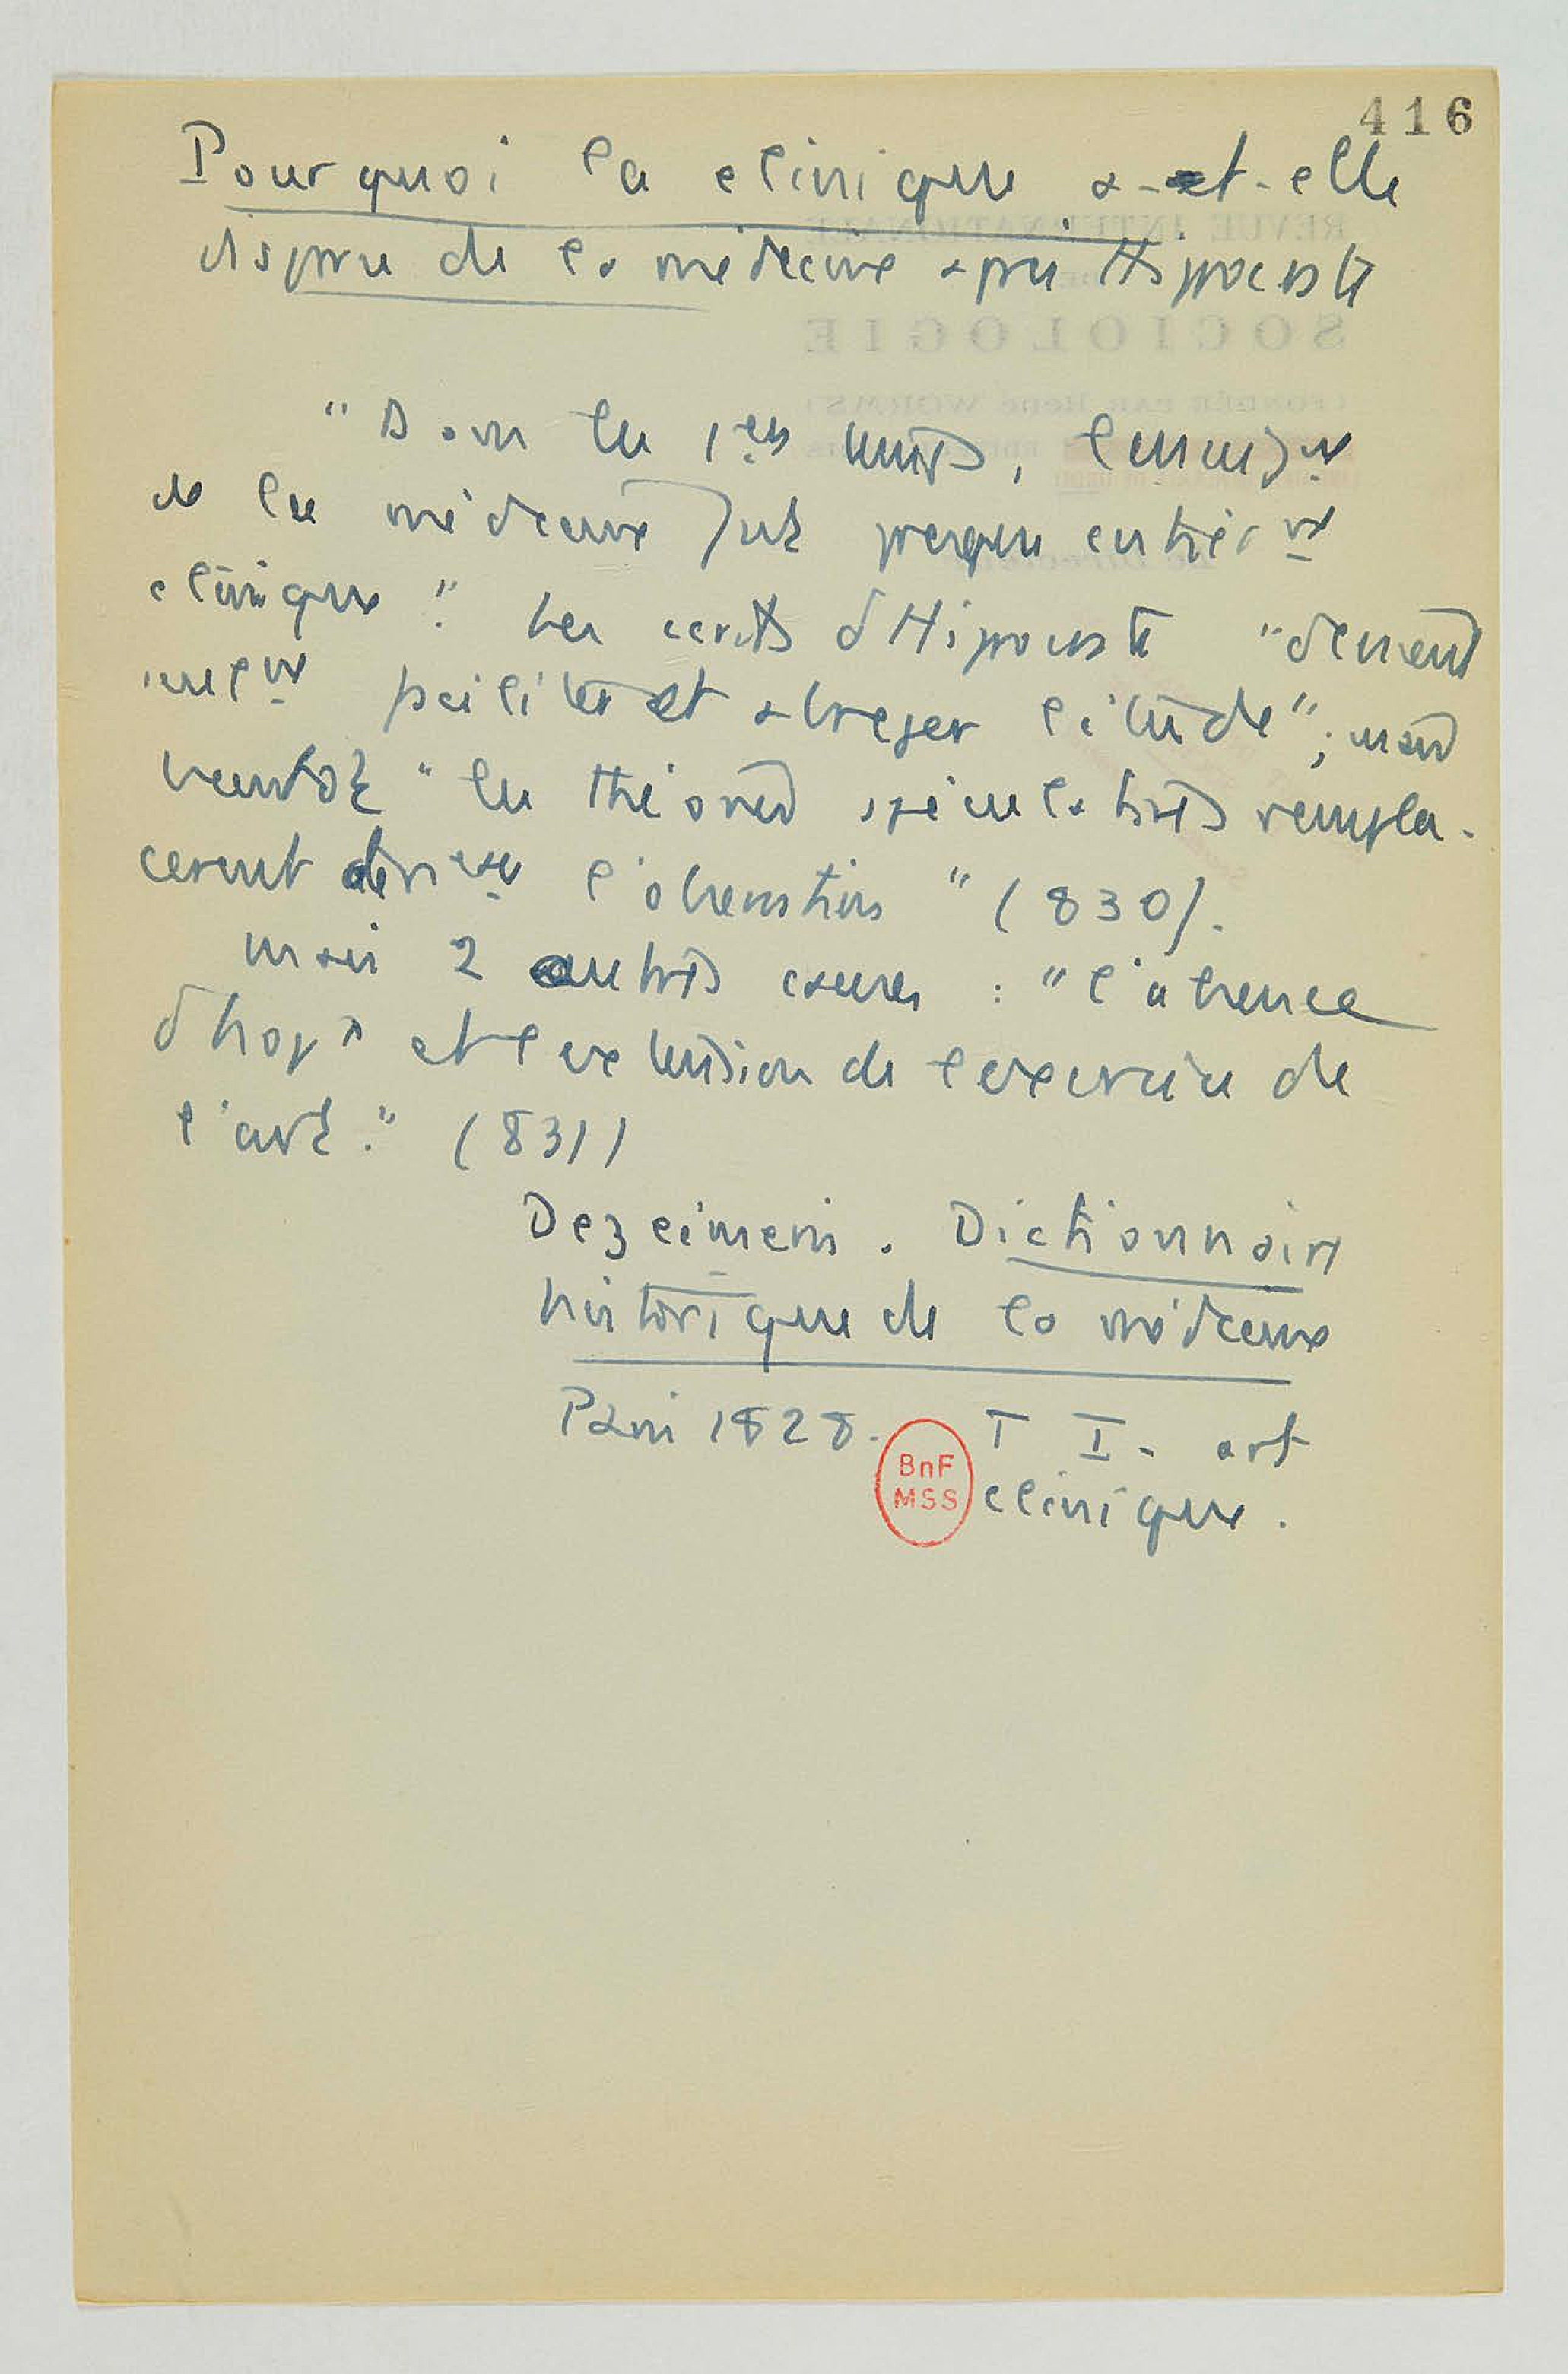 416
Pourquoi la clinique a-t-elle
disparu de la médecine après Hippocrate
"Dans les 1ers temps, l'enseignt
de la médecine fut presque entièrt
clinique." Les écrits d'Hippocrate "devaient
seulemt faciliter et abréger l'étude"; mais
bientôt "les théories spéculatives rempla-
cèrent l'observation" (830).
Mais 2 autres causes : "l'absence
d'hopx et l'extension de l'exercice de
l'art." (831)
Dezeimeris. Dictionnaire
historique de la médecine
Paris 1828. T I. art
clinique.
BnF
MSS
REVUE INTERNATIONALE
SOCIOLOGIE
(FONDÉE PAR René WORMS)